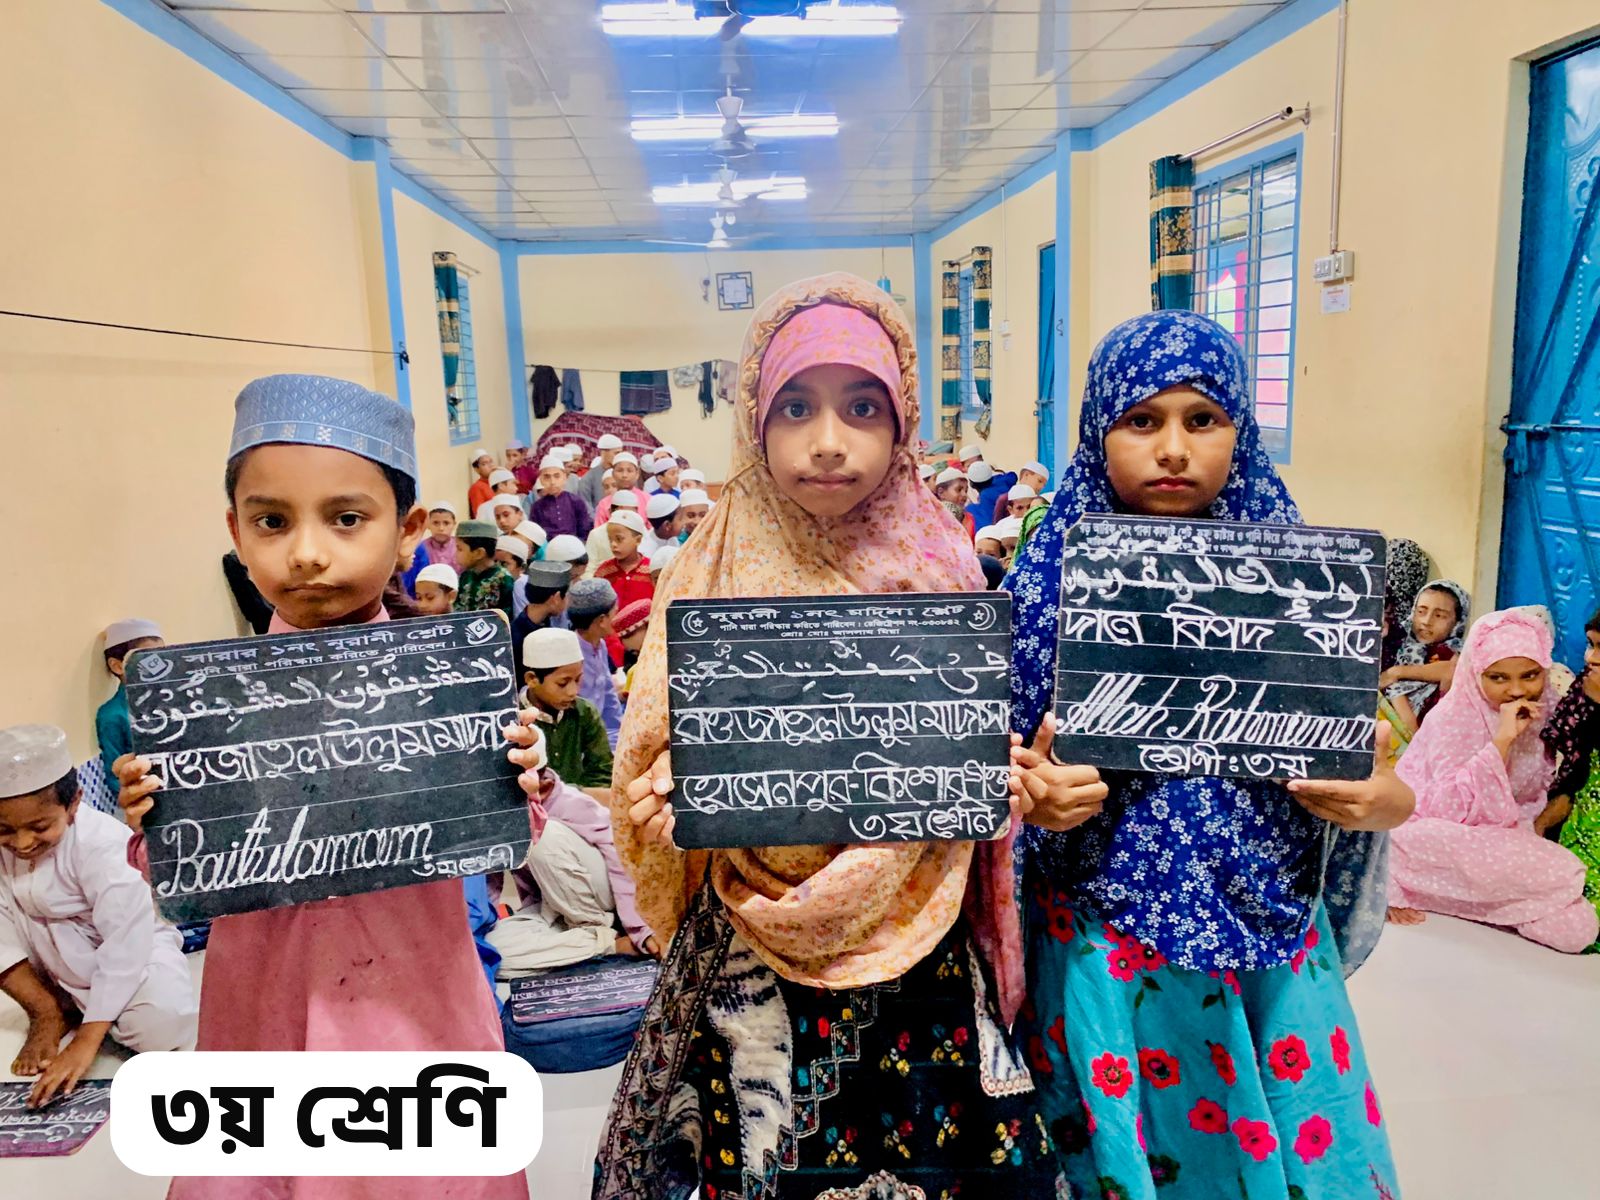 সারার ১নং নূরানী শ্লেট
পানি দ্বারা পরিস্কার করিতে পারিবেন।
وَالسّٰبِقُوْنَ السّٰبِقُوْنَ
রওজাতুল উলুম মাদ্রাসা
Baitulamam
৩য় শ্রেণী
নূরানী ১নং মদিনা শ্লেট
পানি দ্বারা পরিস্কার করিতে পারিবেন। রেজিষ্ট্রেশন নং-০৩০৮৪২
মোঃ আসলাম মিয়া
فِيْ جَنّٰتِ النَّعِيْمِ
রওজাতুল উলুম মাদ্রাসা
হোসেনপুর-কিশোরগঞ্জ
৩য় শ্রেণি
বড় আরিফ ১নং পাকা কালাই শ্লেট
اولٰٓئك المقربون
দানে বিপদ কাটে
Allah Rahamaman
শ্রেণী: ৩য়
৩য় শ্রেণি